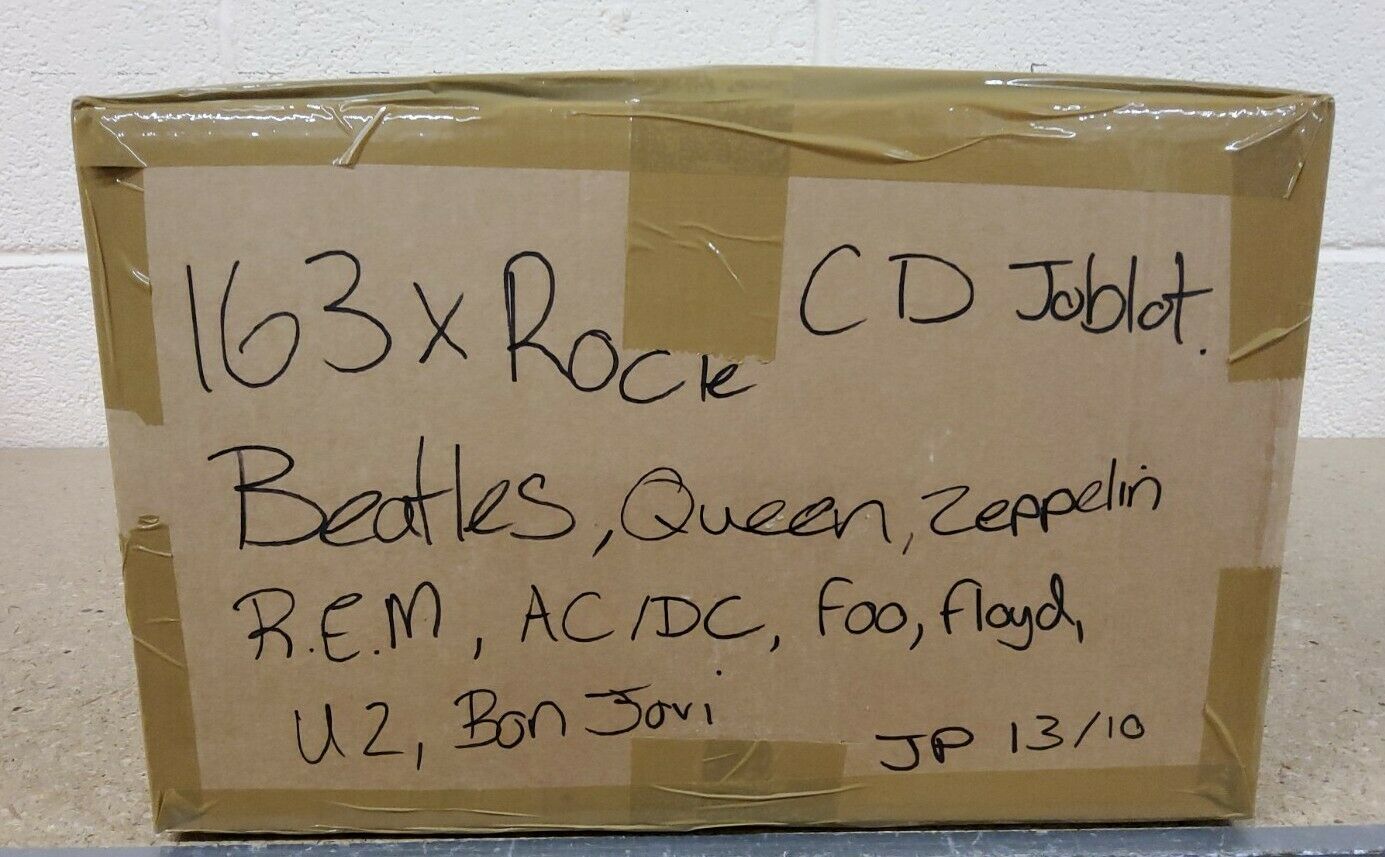 163 x Rock CD Joblot.
Beatles, Queen, Zeppelin
R.E.M, AC/DC, Foo, Floyd,
U2, Bon Jovi
JP 13/10